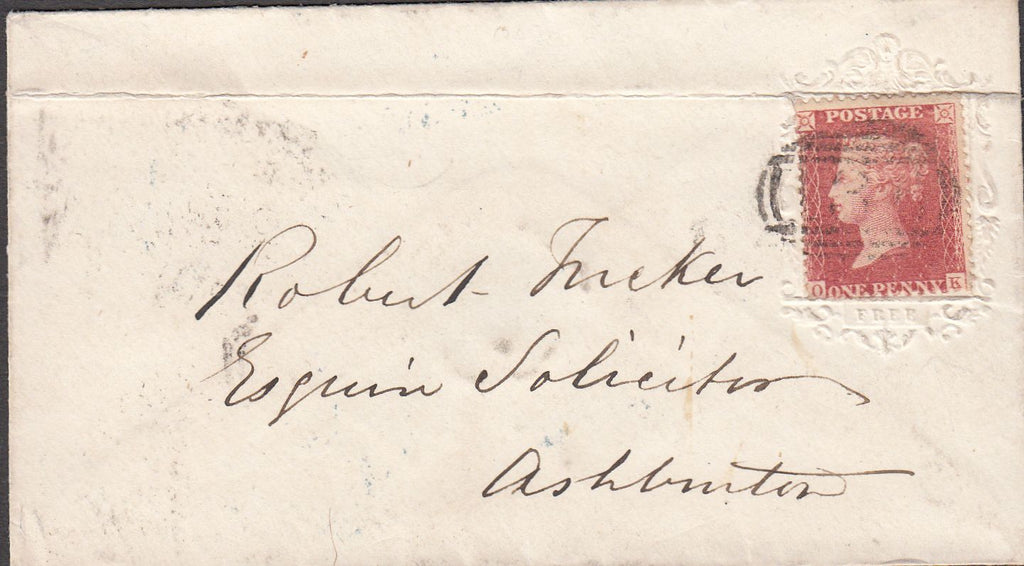 POSTAGE
O ONE PENNY K
FREE
Robert Tucker
Esquire Solicitor
Ashburton